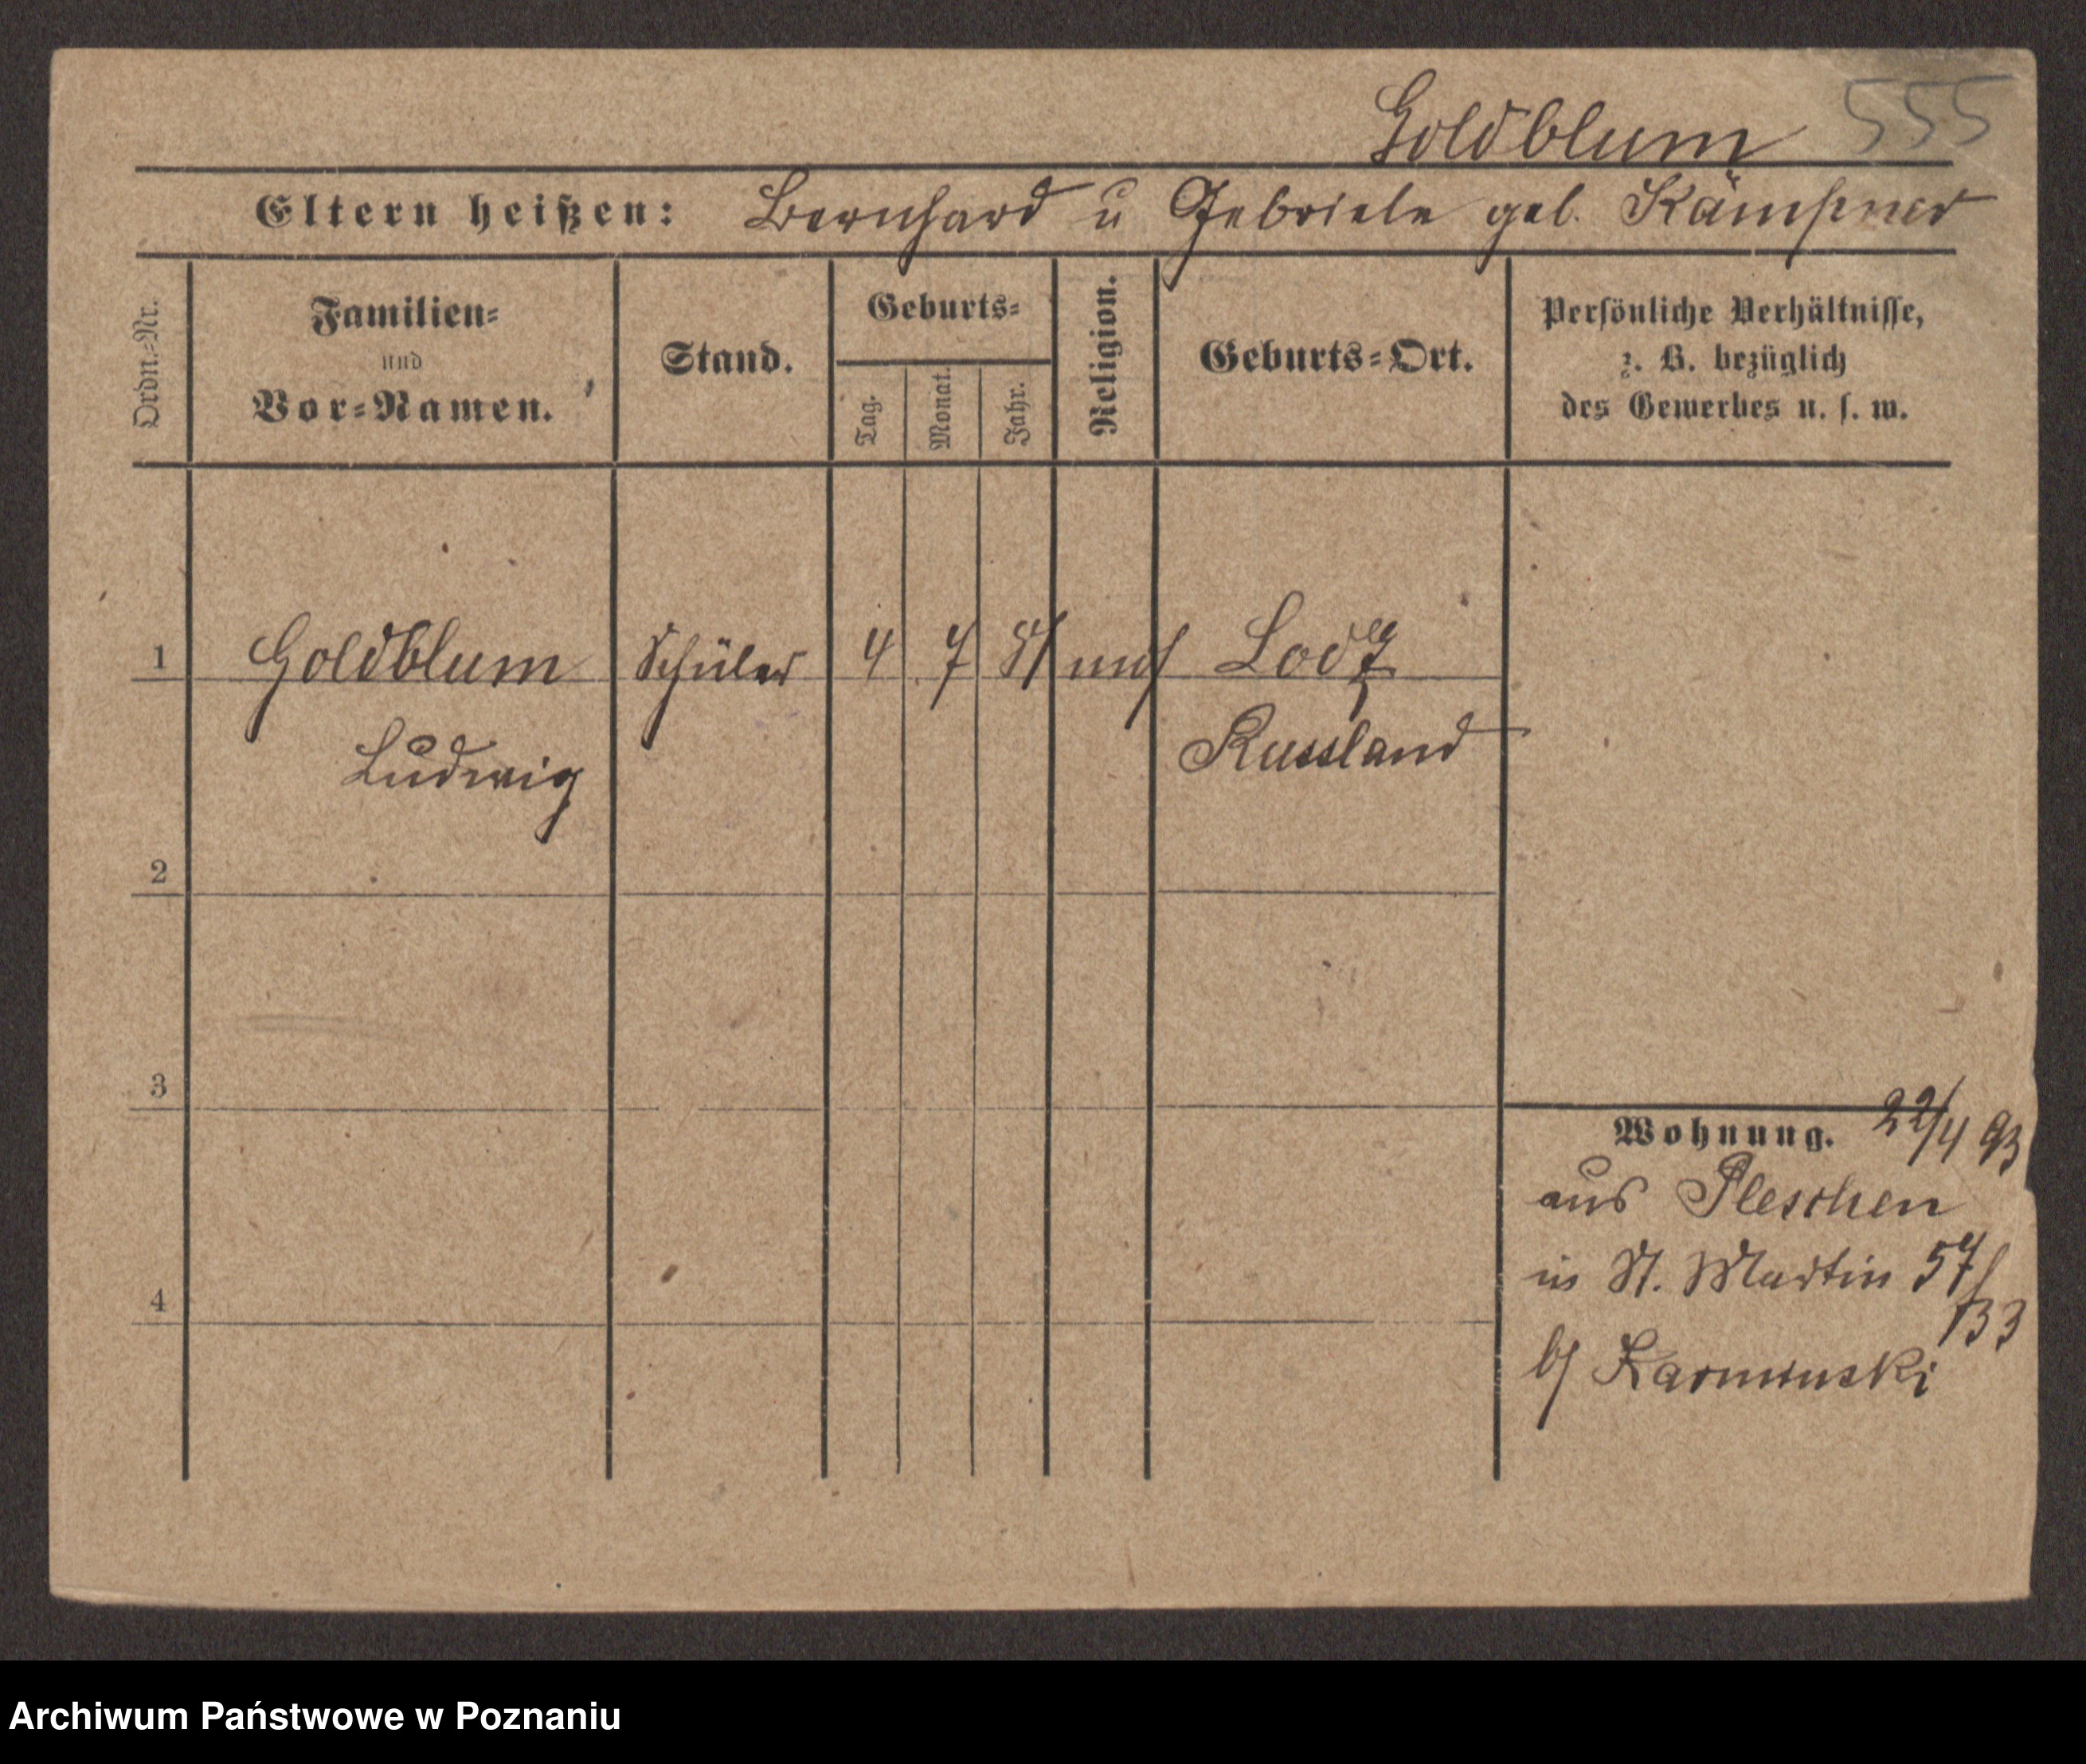 Goldblum 555
Eltern heißen: Bernhard u Gebriele geb. Kämpner
Ordn.=Nr.
Familien=
und
Vor=Namen.
Stand.
Geburts=
Tag.
Monat.
Jahr.
Religion.
Geburts=Ort.
Persönliche Verhältnisse,
z. B. bezüglich
des Gewerbes u. s. w.
1 Goldblum Schüler 4 7 81 mos Lodz
Ludwig Russland
2
3
4
Wohnung. 22/4 93
aus Pleschen
in St. Martin 57/
133
b/ Karminski
Archiwum Państwowe w Poznaniu